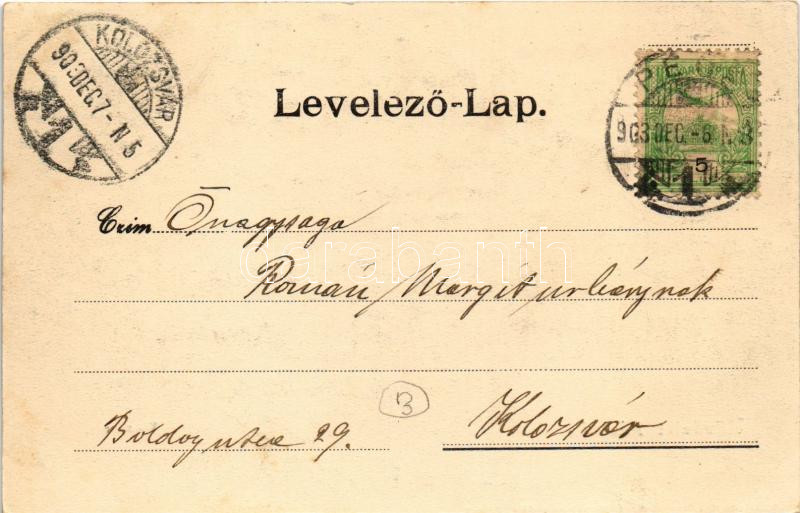 KOLOZSVÁR
903 DEC. 7 - N 5
Levelező-Lap.
POSTA
903 DEC. - 6. N 3
5
1
Czim Őnagysága
darabanth
Román Margit urleánynak
3
Boldog utca 29.
Kolozsvár